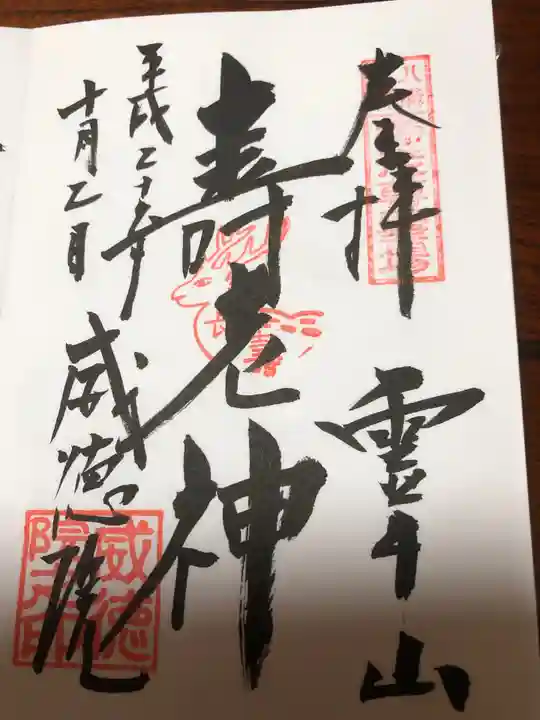 奉拝 霊山
寿老神
長寿
平成二十年
十月二日
威徳院
威徳
院之印